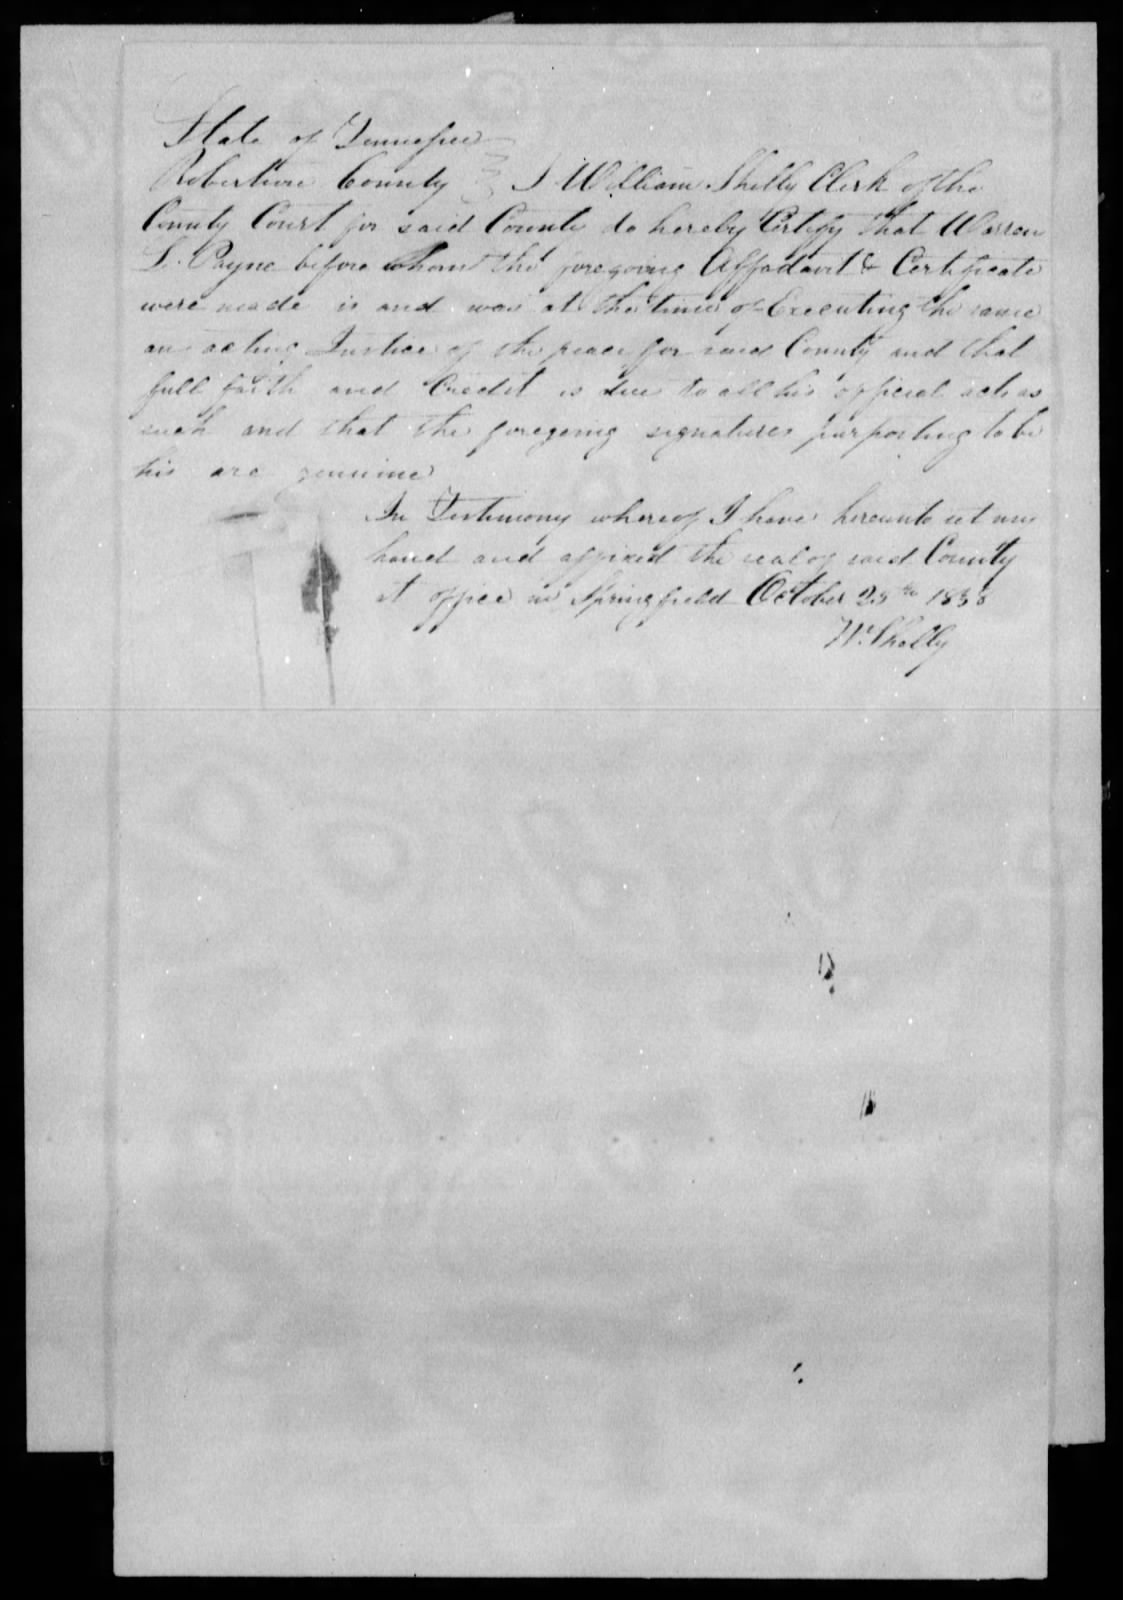 State of Tennessee
Robertson County } I William Shelly Clerk of the
County Court for said County do hereby Certify that Warren
L. Payne before whom the foregoing Affadavit & Certificate
were made is and was at the time of Executing the same
an acting Justice of the peace for said County and that
full faith and Credit is due to all his official acts as
such and that the foregoing signatures purporting to be
his are genuine
In Testimony whereof I have hereunto set my
hand and affixed the seal of said County
at office in Springfield October 25th 1838
W. Shelly